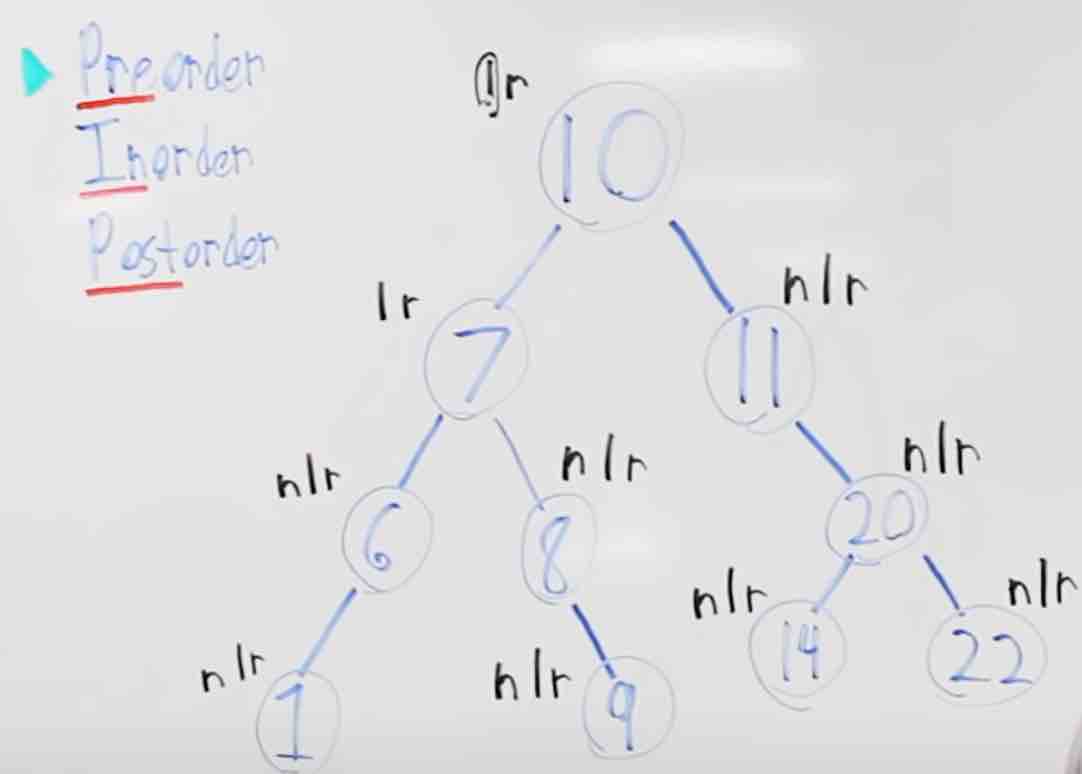 Preorder
Inorder
Postorder
lr
10
lr
7
nlr
11
nlr
6
nlr
8
nlr
20
nlr
1
nlr
9
nlr
14
nlr
22